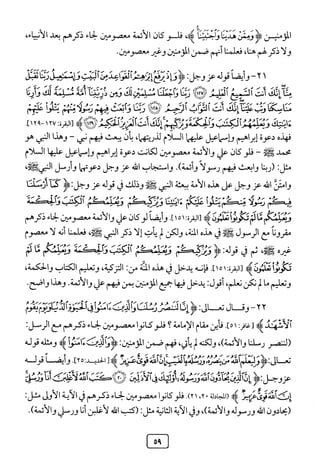 المؤمنين ﴿وَمِمَّنْ هَدَيْنَا وَاجْتَبَيْنَا﴾، فلو كان الأئمة معصومين لجاء ذكرهم بعد الأنبياء،
ولا ذكر لهم هنا، فعلمنا أنهم ضمن المؤمنين وغير معصومين.
٢١- وأيضاً قوله عز وجل: ﴿وَإِذْ يَرْفَعُ إِبْرَاهِيمُ الْقَوَاعِدَ مِنَ الْبَيْتِ وَإِسْمَاعِيلُ رَبَّنَا تَقَبَّلْ
مِنَّا إِنَّكَ أَنْتَ السَّمِيعُ الْعَلِيمُ ۝ رَبَّنَا وَاجْعَلْنَا مُسْلِمَيْنِ لَكَ وَمِنْ ذُرِّيَّتِنَا أُمَّةً مُسْلِمَةً لَكَ وَأَرِنَا
مَنَاسِكَنَا وَتُبْ عَلَيْنَا إِنَّكَ أَنْتَ التَّوَّابُ الرَّحِيمُ ۝ رَبَّنَا وَابْعَثْ فِيهِمْ رَسُولًا مِنْهُمْ يَتْلُو عَلَيْهِمْ
آيَاتِكَ وَيُعَلِّمُهُمُ الْكِتَابَ وَالْحِكْمَةَ وَيُزَكِّيهِمْ إِنَّكَ أَنْتَ الْعَزِيزُ الْحَكِيمُ﴾ [البقرة: ١٢٧-١٢٩]
فهذه دعوة إبراهيم وإسماعيل عليهما السلام لذريتهما، بأن يبعث فيهم نبي – وهذا النبي هو
محمد ﷺ – فلو كان علي والأئمة معصومين لكانت دعوة إبراهيم وإسماعيل عليهما السلام
مثل: (ربنا وابعث فيهم رسولاً وأئمة). واستجاب الله عز وجل دعوتهما وأرسل النبي ﷺ،
وامتنَّ الله عز وجل على هذه الأمة ببعثة النبي ﷺ وذلك في قوله عز وجل: ﴿كَمَا أَرْسَلْنَا
فِيكُمْ رَسُولًا مِنْكُمْ يَتْلُو عَلَيْكُمْ آيَاتِنَا وَيُزَكِّيكُمْ وَيُعَلِّمُكُمُ الْكِتَابَ وَالْحِكْمَةَ
وَيُعَلِّمُكُمْ مَا لَمْ تَكُونُوا تَعْلَمُونَ﴾ [البقرة: ١٥١]. وأيضاً لو كان علي والأئمة معصومين لجاء ذكرهم
مقروناً مع الرسول ﷺ في هذه المنة، ولكن لم يأت إلا ذكر النبي ﷺ، فعلمنا أنه لا معصوم
غيره ﷺ، ثم في قوله: ﴿وَيُزَكِّيكُمْ وَيُعَلِّمُكُمُ الْكِتَابَ وَالْحِكْمَةَ وَيُعَلِّمُكُمْ مَا لَمْ
تَكُونُوا تَعْلَمُونَ﴾ [البقرة: ١٥١]. فإنه يدخل في هذه المنة من: التزكية، وتعليم الكتاب والحكمة،
وتعليم ما لم نكن تعلم، أقول: يدخل فيها جميع المؤمنين بمن فيهم علي والأئمة. وهذا واضح.
٢٢- وقال تعالى: ﴿إِنَّا لَنَنْصُرُ رُسُلَنَا وَالَّذِينَ آمَنُوا فِي الْحَيَاةِ الدُّنْيَا وَيَوْمَ يَقُومُ
الْأَشْهَادُ﴾ [غافر: ٥١]. فأين مقام الإمامة؟ فلو كانوا معصومين لجاء ذكرهم مع الرسل:
(لننصر رسلنا والأئمة)، ولكنه لم يأتي، فهم ضمن المؤمنين: ﴿وَالَّذِينَ آمَنُوا﴾ ومثله قوله
تعالى: ﴿وَلِيَعْلَمَ اللَّهُ مَنْ يَنْصُرُهُ وَرُسُلَهُ بِالْغَيْبِ إِنَّ اللَّهَ قَوِيٌّ عَزِيزٌ﴾ [الحديد: ٢٥]. وأيضاً قوله
عز وجل: ﴿إِنَّ الَّذِينَ يُحَادُّونَ اللَّهَ وَرَسُولَهُ أُولَئِكَ فِي الْأَذَلِّينَ ۝ كَتَبَ اللَّهُ لَأَغْلِبَنَّ أَنَا وَرُسُلِي
إِنَّ اللَّهَ قَوِيٌّ عَزِيزٌ﴾ [المجادلة: ٢٠، ٢١]. فلو كانوا معصومين لجاء ذكرهم في الآية الأولى مثل:
(يحادون الله ورسوله والأئمة)، وفي الآية الثانية مثل: (كتب الله لأغلبن أنا ورسلي والأئمة).
٥٩